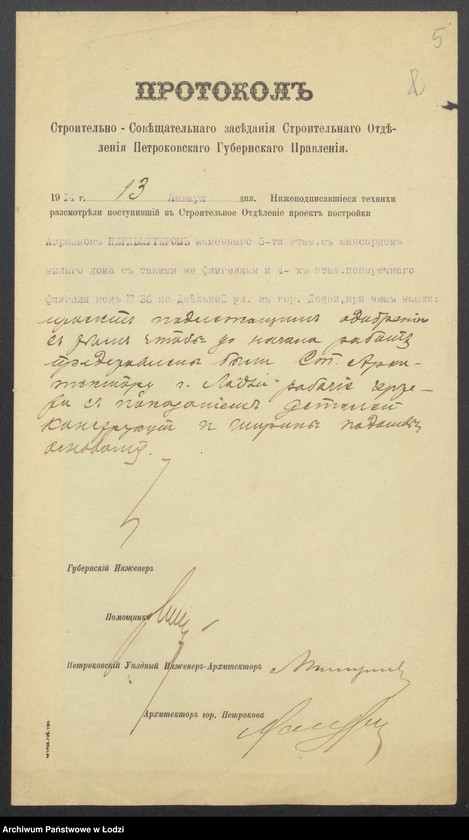 5
ПРОТОКОЛЪ
Строительно - Совѣщательнаго засѣданія Строительнаго Отдѣ-
ленія Петроковскаго Губернскаго Правленія.
1914 г. 13 Января дня. Нижеподписавшіеся техники
разсмотрѣли поступившій въ Строительное Отдѣленіе проектъ постройки
Абрамомъ ПЕРЛЬМУТЕРОМЪ каменнаго 5-ти этаж. съ мансардомъ
жилаго дома съ такими же флигелями и 4-хъ этаж. поперечнаго
флигеля подъ № 36 по Дѣльной ул. въ гор. Лодзи, при чемъ нашли:
проектъ подлежащимъ одобренію
съ тѣмъ чтобы до начала работъ
представлены были Ст. Архи-
тектору г. Лодзи рабочіе черте-
жи съ показаніемъ деталей
конструкцій и ширины подошвы
основанія.
Губернскій Инженеръ
Помощникъ
Петроковскій Уѣздный Инженеръ-Архитекторъ
Архитекторъ гор. Петрокова
ПЕТРОК. ГУБ. ТИП.
Archiwum Państwowe w Łodzi